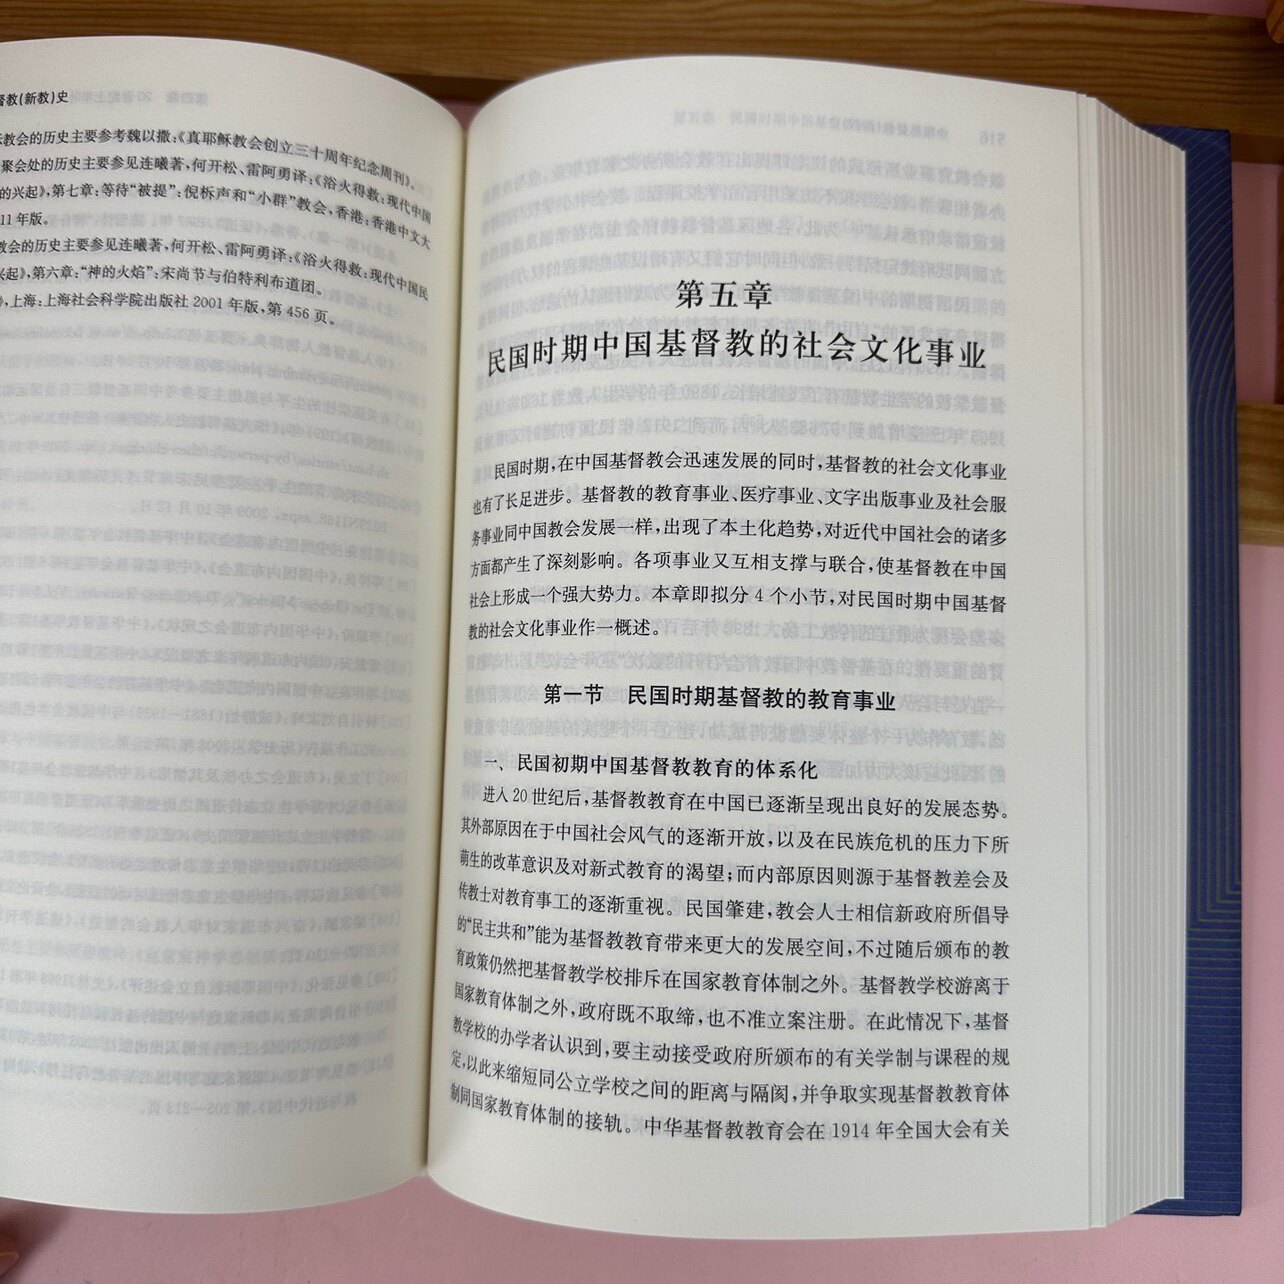 督教(新教)史
教会的历史主要参考魏以撒:《真耶稣教会创立三十周年纪念周刊》。
聚会处的历史主要参见连曦著,何开松、雷阿勇译:《浴火得救:现代中国
的兴起》,第七章:等待“被提”:倪柝声和“小群”教会,香港:香港中文大
11年版。
教会的历史主要参见连曦著,何开松、雷阿勇译:《浴火得救:现代中国民
兴起》,第六章:“神的火焰”:宋尚节与伯特利布道团。
》,上海:上海社会科学院出版社2001年版,第456页。
第五章
民国时期中国基督教的社会文化事业
民国时期,在中国基督教会迅速发展的同时,基督教的社会文化事业
也有了长足进步。基督教的教育事业、医疗事业、文字出版事业及社会服
务事业同中国教会发展一样,出现了本土化趋势,对近代中国社会的诸多
方面都产生了深刻影响。各项事业又互相支撑与联合,使基督教在中国
社会上形成一个强大势力。本章即拟分4个小节,对民国时期中国基督
教的社会文化事业作一概述。
第一节 民国时期基督教的教育事业
一、民国初期中国基督教教育的体系化
进入20世纪后,基督教教育在中国已逐渐呈现出良好的发展态势。
其外部原因在于中国社会风气的逐渐开放,以及在民族危机的压力下所
萌生的改革意识及对新式教育的渴望;而内部原因则源于基督教差会及
传教士对教育事工的逐渐重视。民国肇建,教会人士相信新政府所倡导
的“民主共和”能为基督教教育带来更大的发展空间,不过随后颁布的教
育政策仍然把基督教学校排斥在国家教育体制之外。基督教学校游离于
国家教育体制之外,政府既不取缔,也不准立案注册。在此情况下,基督
教学校的办学者认识到,要主动接受政府所颁布的有关学制与课程的规
定,以此来缩短同公立学校之间的距离与隔阂,并争取实现基督教教育体
制同国家教育体制的接轨。中华基督教教育会在1914年全国大会有关